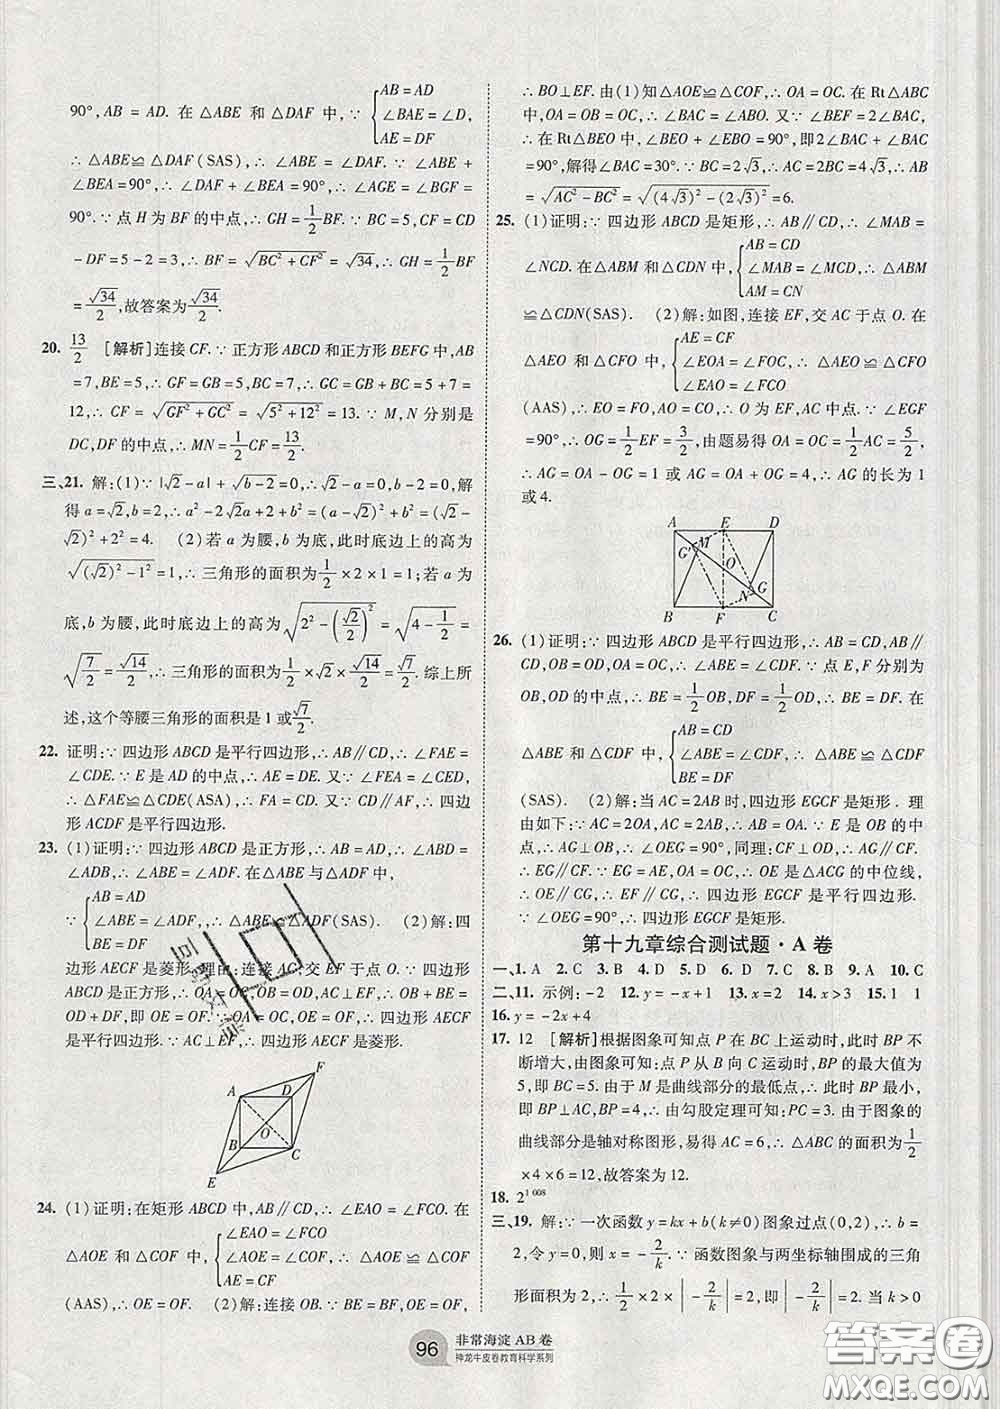 90°,AB = AD. 在 △ABE 和 △DAF 中,∵ { AB = AD
∠BAE = ∠D,
AE = DF
∴ △ABE≌△DAF(SAS),∴ ∠ABE = ∠DAF. ∵ ∠ABE +
∠BEA = 90°,∴ ∠DAF + ∠BEA = 90°,∴ ∠AGE = ∠BGF =
90°. ∵ 点 H 为 BF 的中点,∴ GH = 1/2 BF. ∵ BC = 5,CF = CD
- DF = 5 - 2 = 3,∴ BF = √(BC² + CF²) = √34,∴ GH = 1/2 BF
= √34/2,故答案为 √34/2.
20. 13/2 [解析]连接 CF. ∵ 正方形 ABCD 和正方形 BEFG 中,AB
= 7,BE = 5,∴ GF = GB = 5,BC = 7,∴ GC = GB + BC = 5 + 7 =
12,∴ CF = √(GF² + GC²) = √(5² + 12²) = 13. ∵ M,N 分别是
DC,DF 的中点,∴ MN = 1/2 CF = 13/2.
三、21. 解:(1)∵ |√2 - a| + √(b - 2) = 0,∴ √2 - a = 0,b - 2 = 0,解
得 a = √2,b = 2,∴ a² - 2√2a + 2 + b² = (a - √2)² + b² = (√2 -
√2)² + 2² = 4. (2)若 a 为腰,b 为底,此时底边上的高为
√((√2)² - 1²) = 1,∴ 三角形的面积为 1/2 × 2 × 1 = 1;若 a 为
底,b 为腰,此时底边上的高为 √(2² - (√2/2)²) = √(4 - 1/2) =
√(7/2) = √14/2,∴ 三角形的面积为 1/2 × √2 × √14/2 = √7/2. 综上所
述,这个等腰三角形的面积是 1 或 √7/2.
22. 证明:∵ 四边形 ABCD 是平行四边形,∴ AB∥CD,∴ ∠FAE =
∠CDE. ∵ E 是 AD 的中点,∴ AE = DE. 又 ∵ ∠FEA = ∠CED,
∴ △FAE≌△CDE(ASA),∴ FA = CD. 又 ∵ CD∥AF,∴ 四边
形 ACDF 是平行四边形.
23. (1)证明:∵ 四边形 ABCD 是正方形,∴ AB = AD,∴ ∠ABD =
∠ADB,∴ ∠ABE = ∠ADF. 在 △ABE 与 △ADF 中,
∵ { AB = AD
∠ABE = ∠ADF,∴ △ABE≌△ADF(SAS). (2)解:四
BE = DF
边形 AECF 是菱形. 理由:连接 AC,∵ 四边形 ABCD 是正方
形,∴ OA = OC,OB = OD,AC⊥EF,∴ OB + BE =
OD + DF,即 OE = OF. ∵ OA = OC,OE = OF,∴ 四边形 AECF
是平行四边形. ∵ AC⊥EF,∴ 四边形 AECF 是菱形.
F
A D
O
B C
E
24. (1)证明:在矩形 ABCD 中,AB∥CD,∴ ∠EAO = ∠FCO. 在
△AOE 和 △COF 中,{ ∠EAO = ∠FCO
∠AOE = ∠COF,∴ △AOE ≌ △COF
AE = CF
(AAS),∴ OE = OF. (2)解:连接 OB. ∵ BE = BF,OE = OF,
∴ BO⊥EF. 由(1)知△AOE≌△COF,∴ OA = OC. 在 Rt△ABC
中,OA = OB = OC,∴ ∠BAC = ∠ABO. 又 ∵ ∠BEF = 2∠BAC,
∴ 在 Rt△BEO 中,∠BEO + ∠EBO = 90°,即 2∠BAC + ∠BAC
= 90°,解得∠BAC = 30°. ∵ BC = 2√3,∴ AC = 2BC = 4√3,∴ AB
= √(AC² - BC²) = √((4√3)² - (2√3)²) = 6.
25. (1)证明:∵ 四边形 ABCD 是矩形,∴ AB∥CD,∴ ∠MAB =
∠NCD. 在△ABM 和△CDN 中,{ AB = CD
∠MAB = ∠MCD,∴ △ABM
AM = CN
≌△CDN(SAS). (2)解:如图,连接 EF,交 AC 于点 O. 在
△AEO 和 △CFO 中,{ AE = CF
∠EOA = ∠FOC,∴ △AEO ≌ △CFO
∠EAO = ∠FCO
(AAS),∴ EO = FO,AO = CO,∴ O 为 EF,AC 中点. ∵ ∠EGF
= 90°,∴ OG = 1/2 EF = 3/2,由题易得 OA = OC = 1/2 AC = 5/2,
∴ AG = OA - OG = 1 或 AG = OA + OG = 4,∴ AG 的长为 1
或 4.
A E D
G′ M
O
N G
B F C
26. (1)证明:∵ 四边形 ABCD 是平行四边形,∴ AB = CD,AB∥
CD,OB = OD,OA = OC,∴ ∠ABE = ∠CDF. ∵ 点 E,F 分别为
OB,OD 的中点,∴ BE = 1/2 OB,DF = 1/2 OD,∴ BE = DF. 在
△ABE 和 △CDF 中,{ AB = CD
∠ABE = ∠CDF,∴ △ABE ≌ △CDF
BE = DF
(SAS). (2)解:当 AC = 2AB 时,四边形 EGCF 是矩形. 理
由如下:∵ AC = 2OA,AC = 2AB,∴ AB = OA. ∵ E 是 OB 的中
点,∴ AG⊥OB,∴ ∠OEG = 90°,同理:CF⊥OD,∴ AG∥CF,∴
EG∥CF. ∵ EG = AE,OA = OC,∴ OE 是△ACG 的中位线,
∴ OE∥CG,∴ EF∥CG,∴ 四边形 EGCF 是平行四边形.
∵ ∠OEG = 90°,∴ 四边形 EGCF 是矩形.
第十九章综合测试题·A 卷
一、1. A 2. C 3. B 4. D 5. D 6. D 7. C 8. B 9. A 10. C
二、11. 示例: -2 12. y = -x + 1 13. x = 2 14. x > 3 15. 1 1
16. y = -2x + 4
17. 12 [解析]根据图象可知点 P 在 BC 上运动时,此时 BP 不
断增大,由图象可知:点 P 从 B 向 C 运动时,BP 的最大值为
5,即 BC = 5. 由于 M 是曲线部分的最低点,∴ 此时 BP 最小,
即 BP⊥AC,BP = 4,∴ 由勾股定理可知:PC = 3. 由于图象的
曲线部分是轴对称图形,易得 AC = 6,∴ △ABC 的面积为 1/2
× 4 × 6 = 12,故答案为 12.
18. 2^1 008
三、19. 解:∵ 一次函数 y = kx + b(k ≠ 0)图象过点(0,2),∴ b =
2,令 y = 0,则 x = -2/k. ∵ 函数图象与两坐标轴围成的三角
形面积为 2,∴ 1/2 × 2 × |-2/k| = 2,即|-2/k| = 2. 当 k > 0
96
非常海淀 AB 卷
神龙牛皮卷教育科学系列
答案圈
MXQE.COM